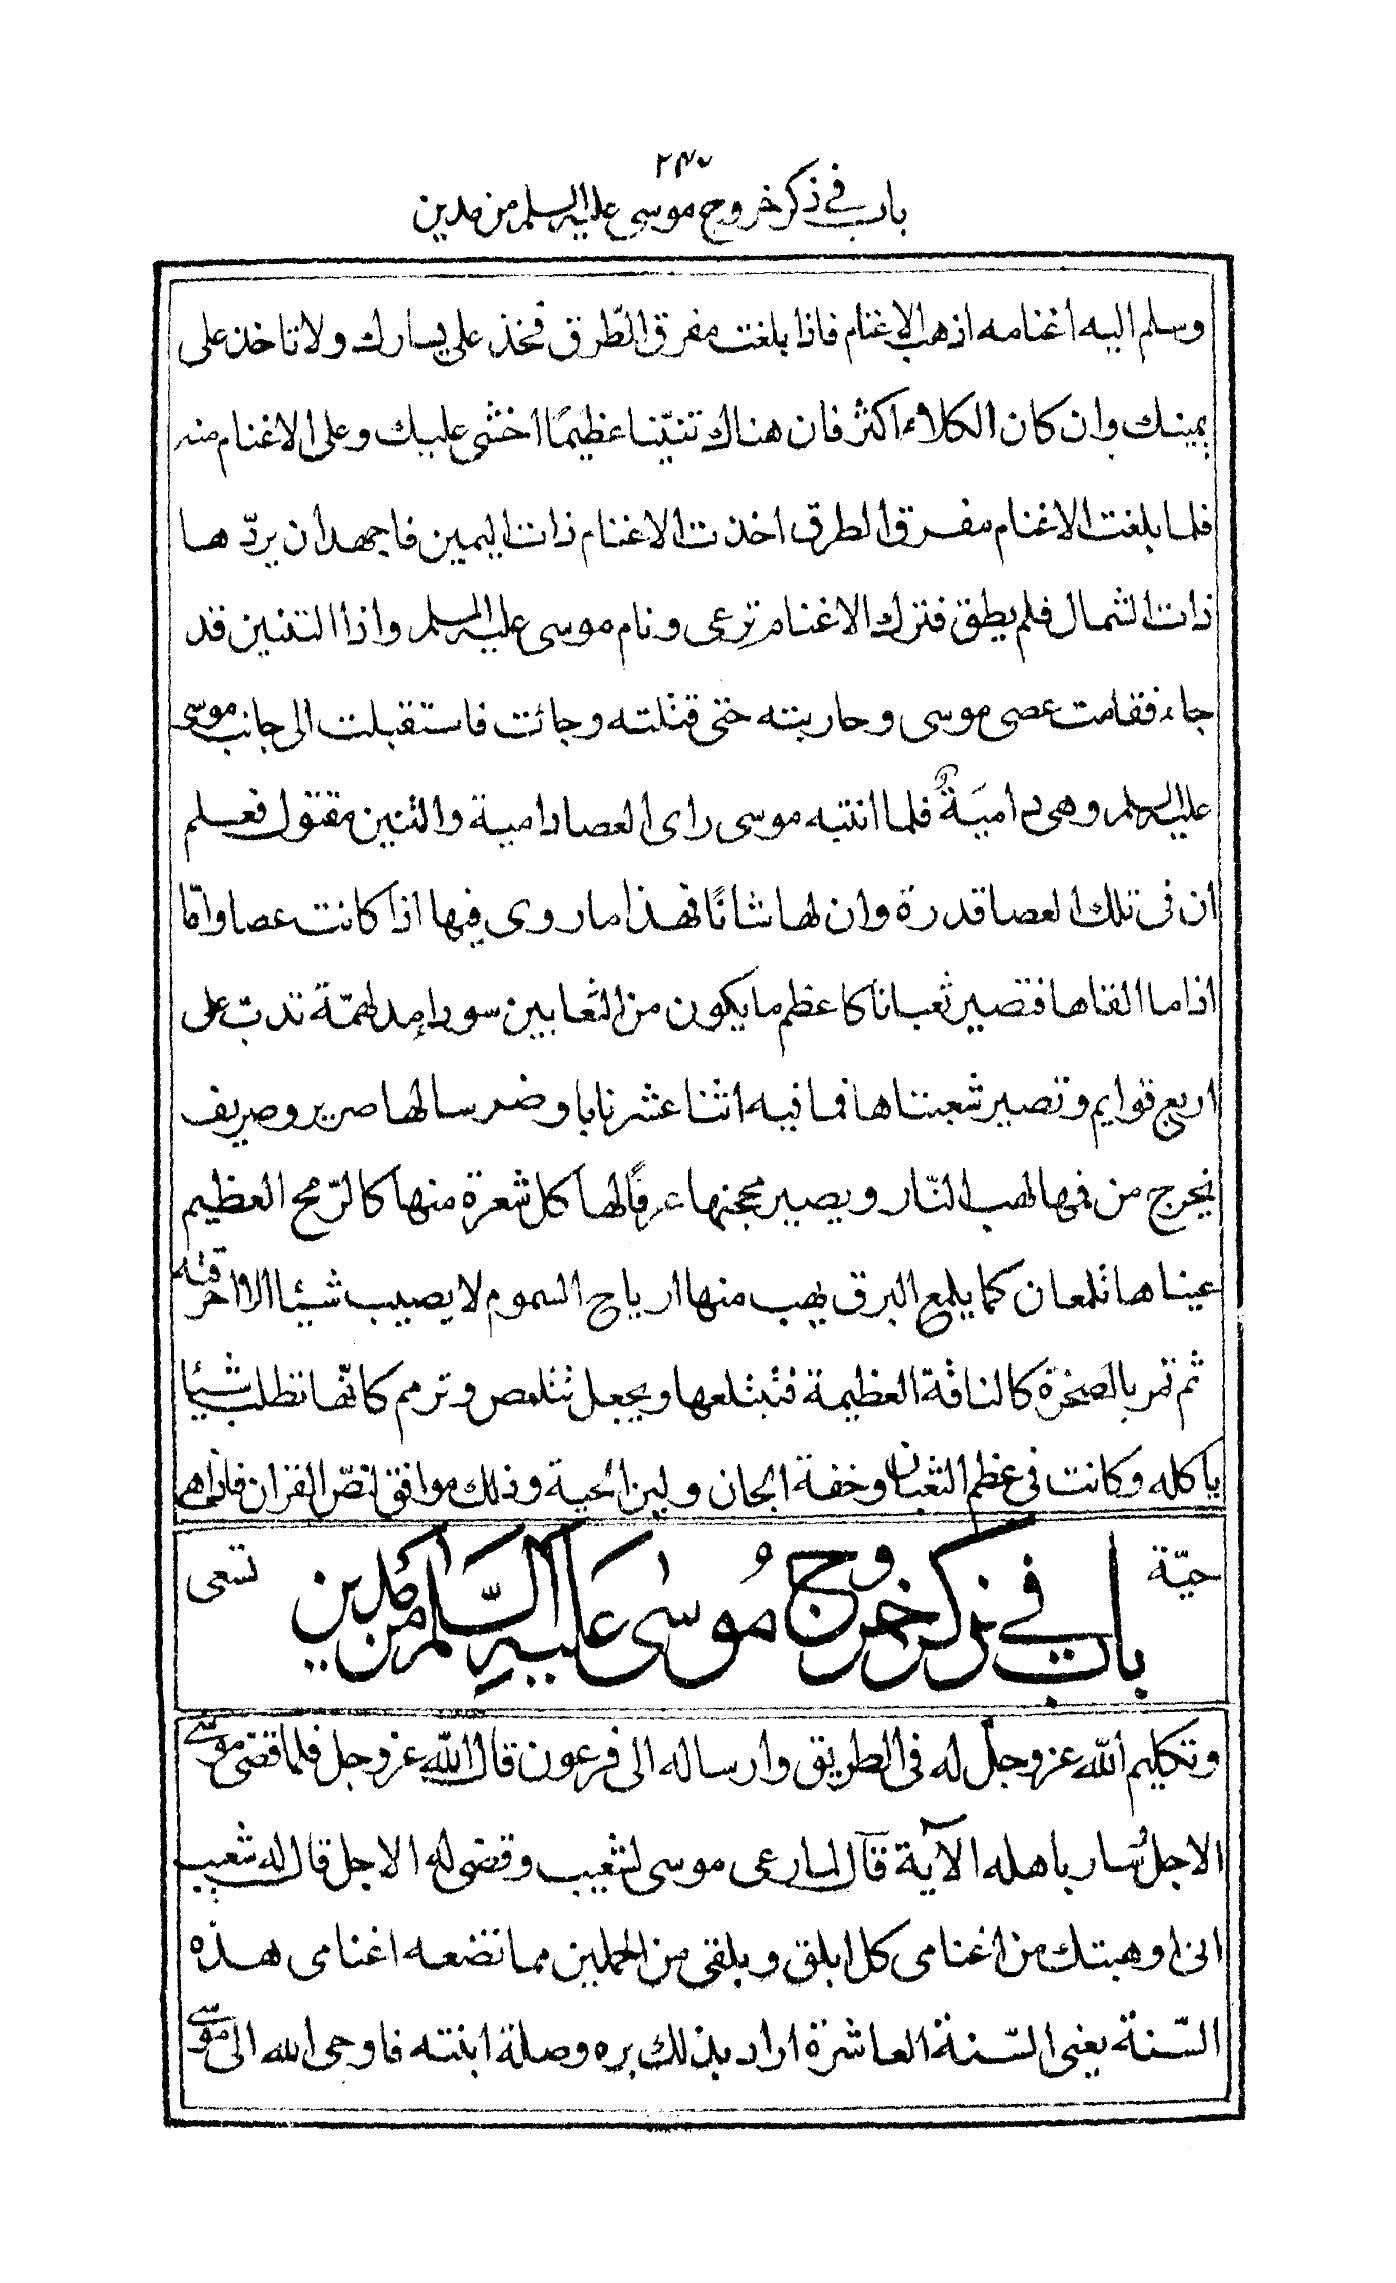 ٢٤٧
باب في ذكر خروج موسى عليه السلم من مدين
وسلم اليه اغنامه اذهب الاغنام فاذا بلغت مفرق الطّرق فخذ على يسارك ولا تاخذ على
يمينك وان كان الكلاء اكثر فان هناك تنيّنا عظيمًا اخشى عليك وعلى الاغنام منه
فلما بلغت الاغنام مفرق الطرق اخذت الاغنام ذات اليمين فاجهد ان يردّها
ذات الشمال فلم يطق فترك الاغنام ترعى ونام موسى عليه السلم واذا التنين قد
جاء فقامت عصى موسى وحاربته حتى قتلته وجائت فاستقبلت الى جانب موسى
عليه السلم وهى داميَةٌ فلما انتبه موسى راى العصا دامية والتنين مقتول فعلم
ان فى تلك العصا قدرة وان لها شانًا فهذا ما روى فيها اذا كانت عصا وامّا
اذا ما القاها فتصير ثعبانا كاعظم ما يكون من الثعابين سودا مدلهمّة تدبّ على
اربع قوايم وتصير شعبتاها فما فيه اثنا عشر نابا وضرسا لها صرير وصريف
يخرج من فمها لهب النّار ويصير محجنها عرفًا لها كل شعرة منها كالرّمح العظيم
عيناها تلمعان كما يلمع البرق يهب منها ارياح السموم لا يصيب شيئا الا احرقته
ثم تمر بالصخرة كالناقة العظيمة فتبتلعها ويجعل تتلمص وترمم كانّها تطلب شيئا
ياكله وكانت فى عظم الثعبان وخفة الجان ولين الحية وذلك موافق لنصّ القران فاذا هى
حيّة تسعى
باب في ذكر خروج موسى عليه السّلم من مدين
وتكليم الله عز وجلّ له فى الطريق وارساله الى فرعون قال الله عز وجل فلما قضى موسى
الاجل وسار باهله الآية قال لما رعى موسى لشعيب وقضى له الاجل قال له شعيب
انى اوهبتك من اغنامى كل ابلق وبلقى من الحملين مما تضعه اغنامى هذه
السّنة يعنى السّنة العاشرة اراد بذلك بره وصلة ابنته فاوحى الله الى موسى